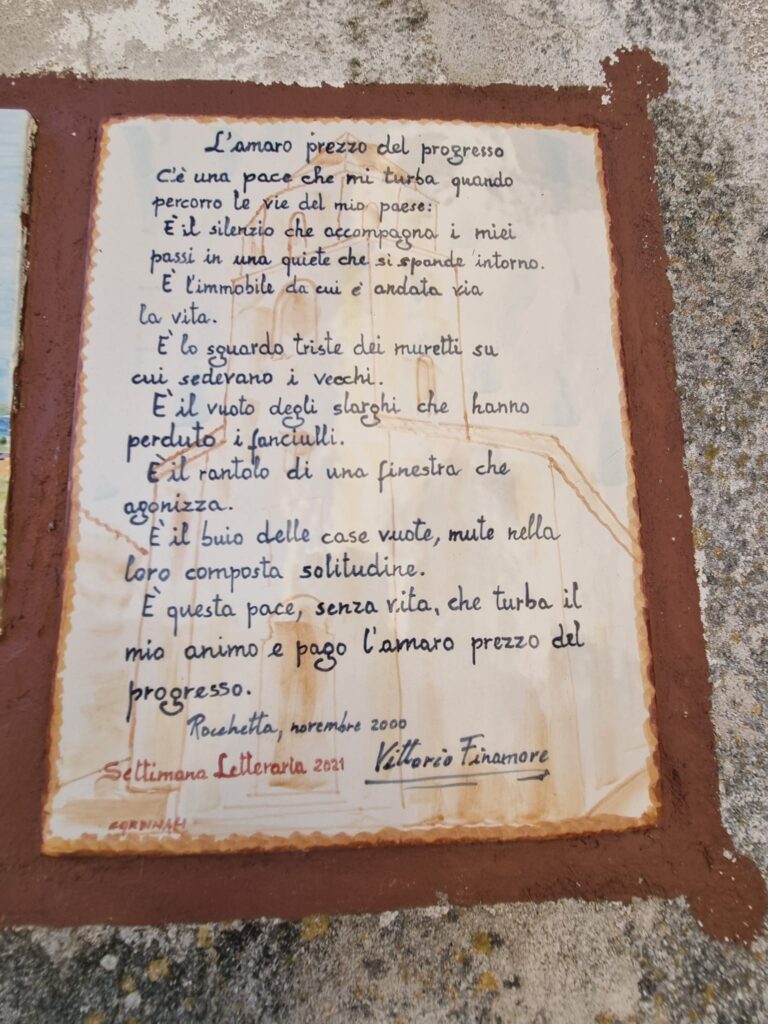 L'amaro prezzo del progresso
C'è una pace che mi turba quando
percorro le vie del mio paese:
È il silenzio che accompagna i miei
passi in una quiete che si spande intorno.
È l'immobile da cui è andata via
la vita.
È lo sguardo triste dei muretti su
cui sedevano i vecchi.
È il vuoto degli slarghi che hanno
perduto i fanciulli.
È il rantolo di una finestra che
agonizza.
È il buio delle case vuote, mute nella
loro composta solitudine.
È questa pace, senza vita, che turba il
mio animo e pago l'amaro prezzo del
progresso.
Rocchetta, novembre 2000
Settimana Letteraria 2021 Vittorio Finamore